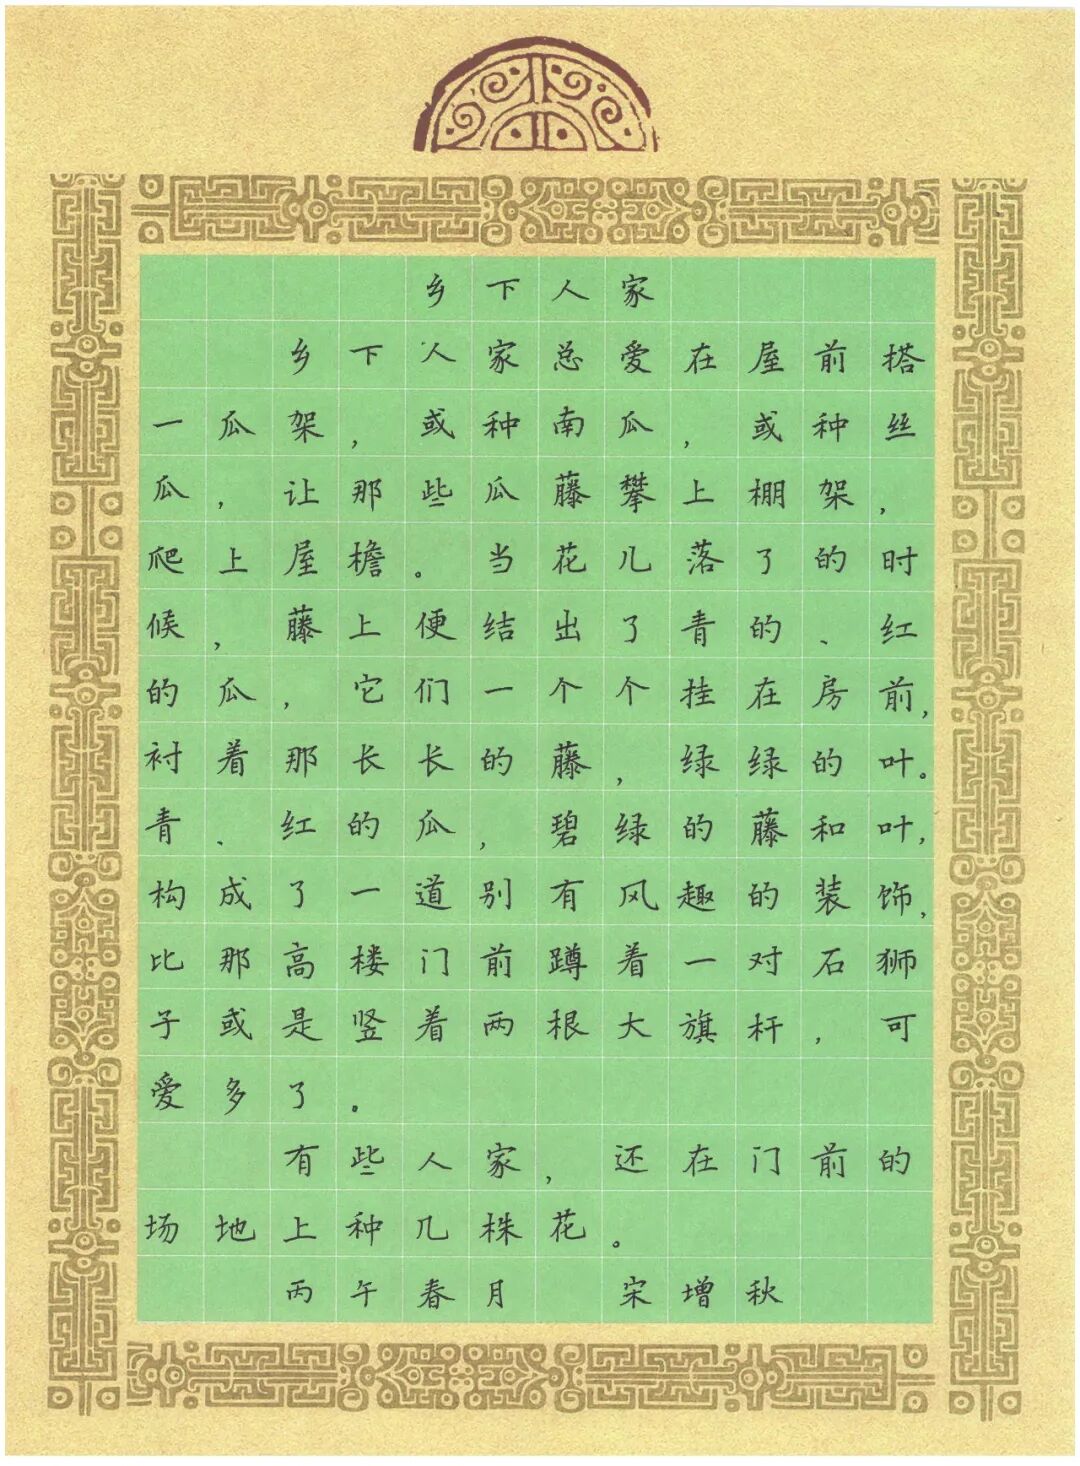 乡下人家
乡下人家总爱在屋前搭
一瓜架，或种南瓜，或种丝
瓜，让那些瓜藤攀上棚架，
爬上屋檐。当花儿落了的时
候，藤上便结出了青的、红
的瓜，它们一个个挂在房前，
衬着那长长的藤，绿绿的叶。
青、红的瓜，碧绿的藤和叶，
构成了一道别有风趣的装饰，
比那高楼门前蹲着一对石狮
子或是竖着两根大旗杆，可
爱多了。
有些人家，还在门前的
场地上种几株花。
丙午春月 宋增秋